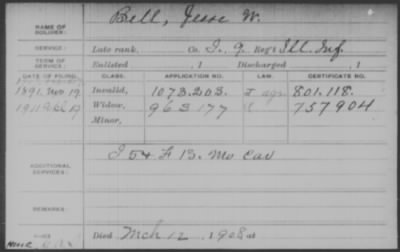 NAME OF SOLDIER: Bell, Jesse W.
SERVICE: Late rank, Co. I, 9 Reg't Ill. Inf.
TERM OF SERVICE: Enlisted , 1 Discharged , 1
DATE OF FILING. CLASS. APPLICATION NO. LAW. CERTIFICATE NO.
1891. Nov 19 Invalid, 1073.203. 801.118.
Widow, 963177 757904
Minor,
ADDITIONAL SERVICES: I & H 13. Mo Cav
REMARKS:
Died Mch 12, 1908 at